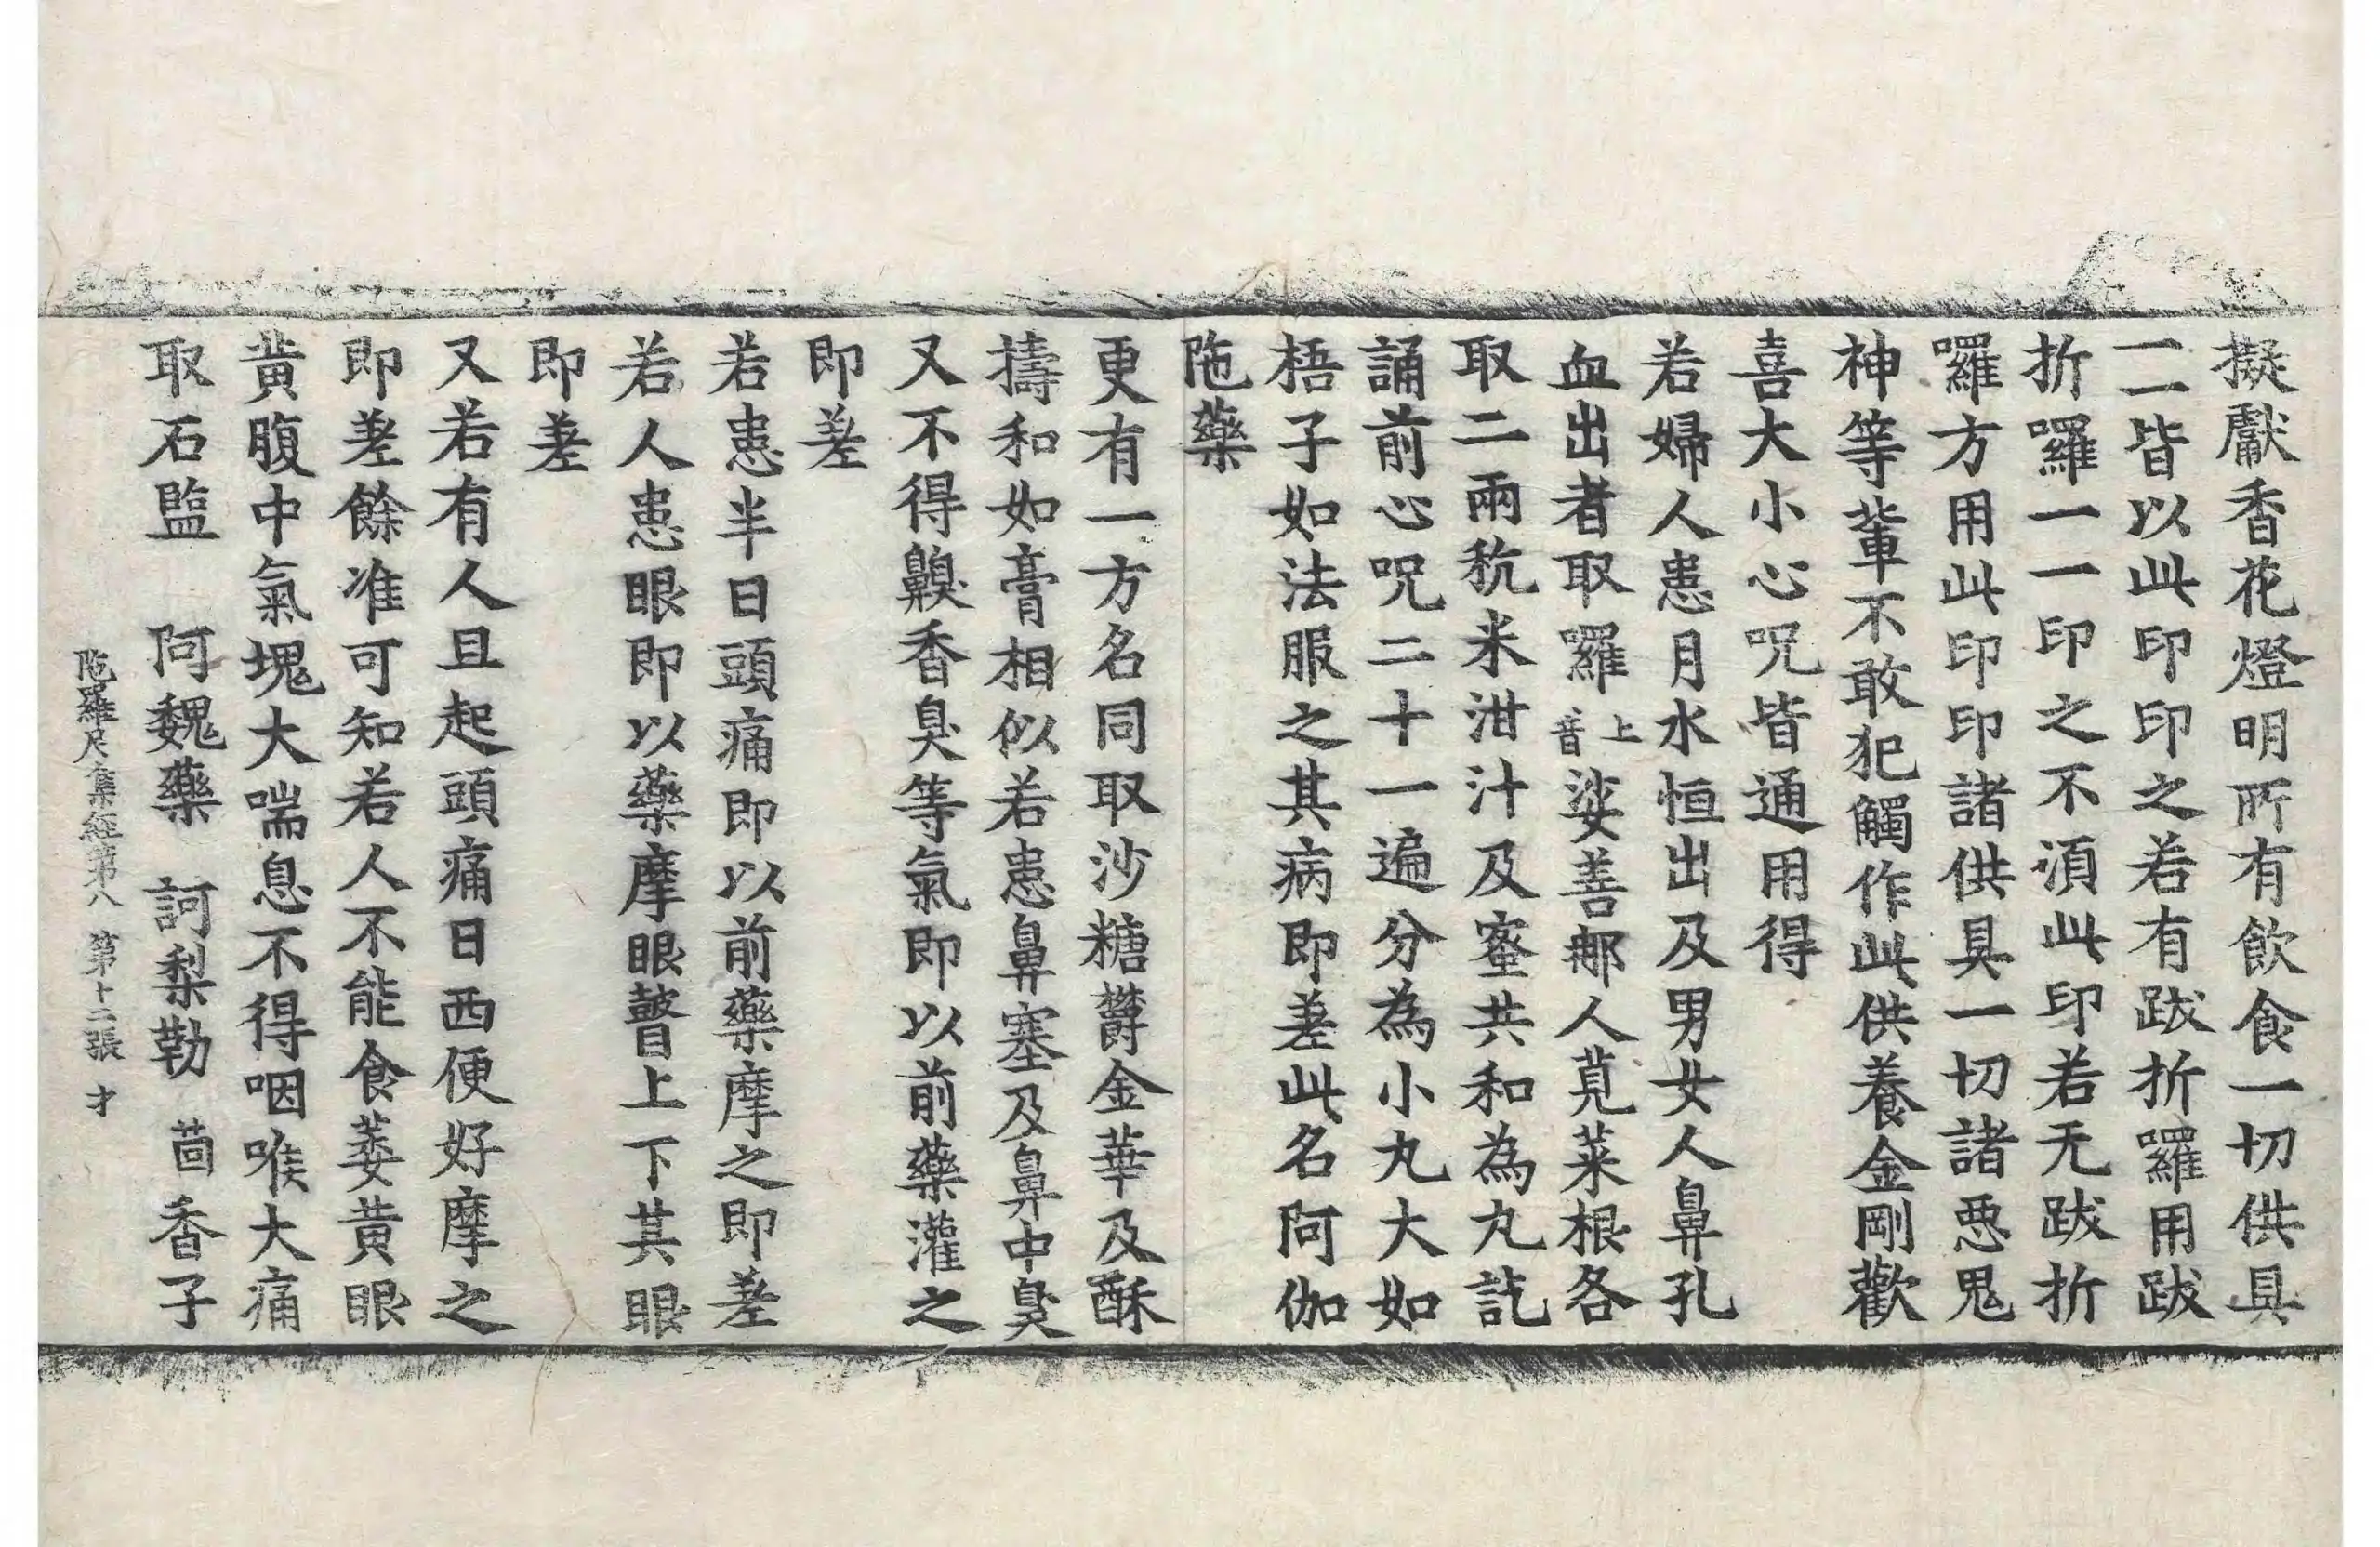 擬獻香花燈明所有飲食一切供具
一一皆以此印印之若有跋折囉用跋
折囉一一印之不湏此印若无跋折
囉方用此印印諸供具一切諸惡鬼
神等輩不敢犯觸作此供養金剛歡
喜大小心呪皆通用得
若婦人患月水恒出及男女人鼻孔
血出者取囉上音娑善那人莧菜根各
取二兩秔米泔汁及蜜共和為丸訖
誦前心呪二十一遍分為小丸大如
梧子如法服之其病即差此名阿伽
陁藥
更有一方名同取沙糖欝金華及酥
擣和如膏相似若患鼻塞及鼻中臭
又不得齅香臭等氣即以前藥灌之
即差
若患半日頭痛即以前藥摩之即差
若人患眼即以藥摩眼瞽上下其眼
即差
又若有人旦起頭痛日西便好摩之
即差餘准可知若人不能食萎黃眼
黃腹中氣塊大喘息不得咽喉大痛
取石監 阿魏藥 訶梨勒 茴香子
陁羅尼集經第八 第十二張 才